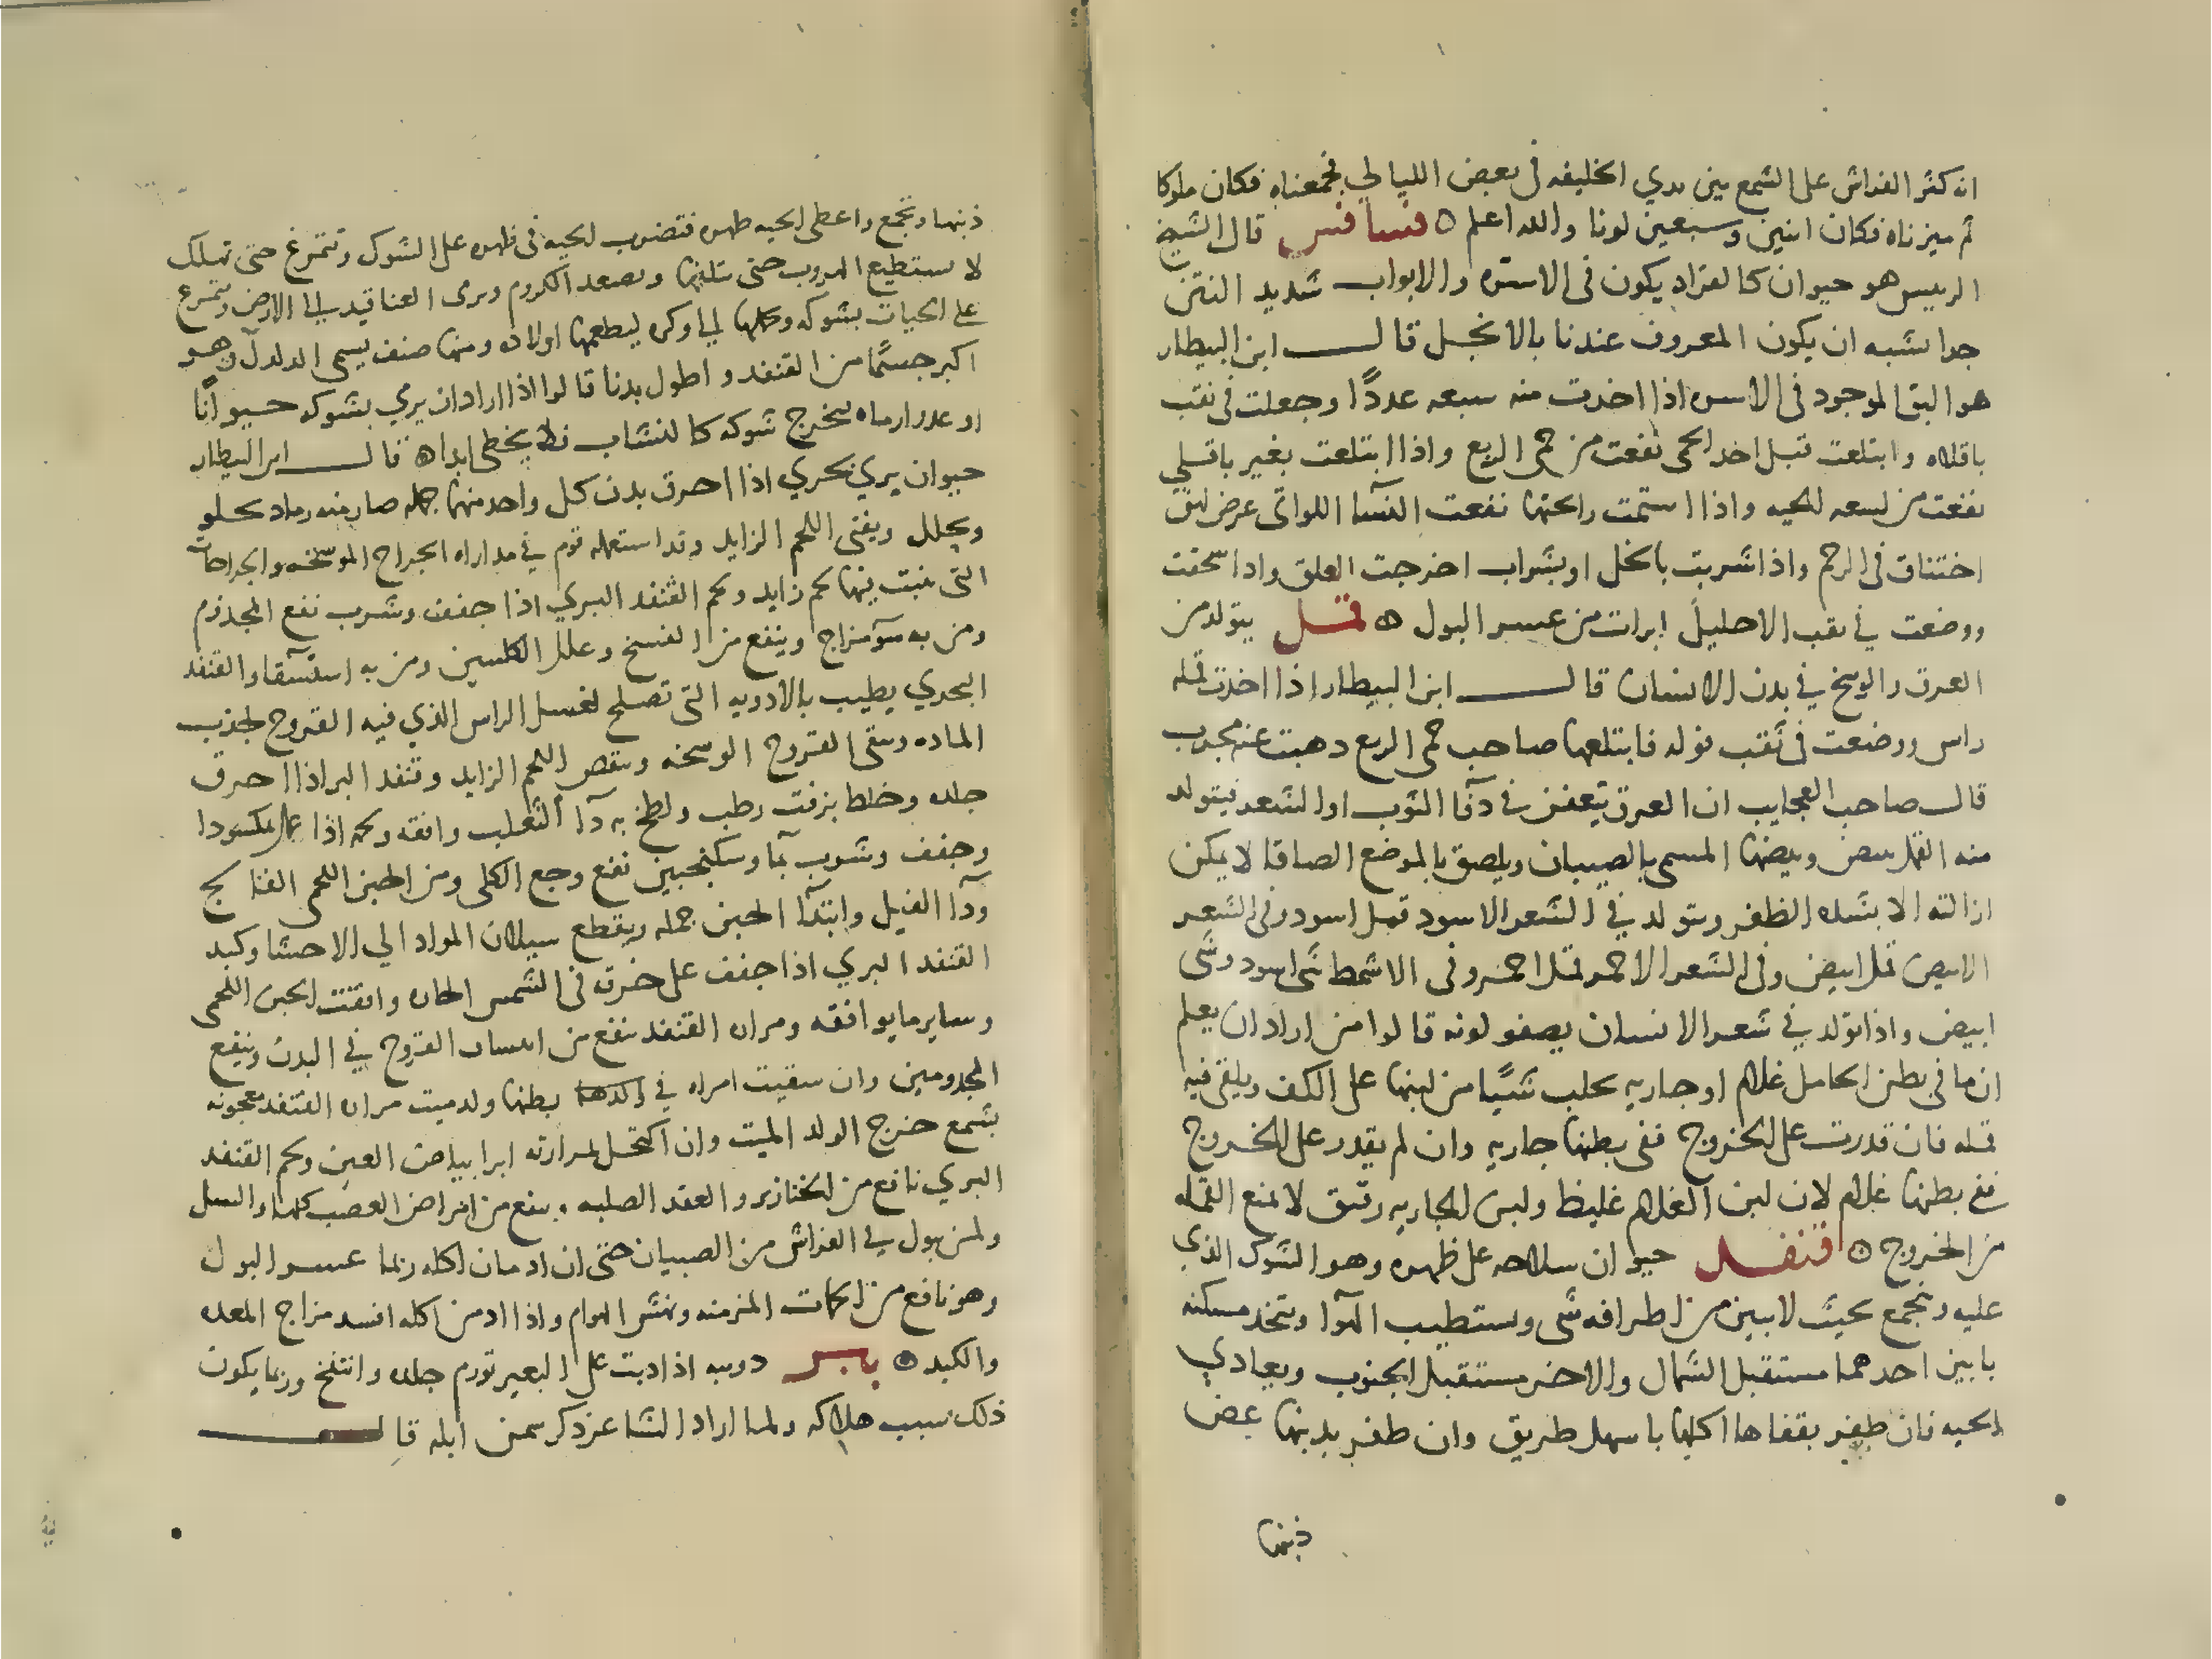 انه كثر الفراش على الشمع بين يدي الخليفه في بعض الليالي فجمعناه فكان ملوكا
ثم ميزناه فكان اثنين وسبعين لونا والله اعلم ه فسافس قال الشيخ
الرييس هو حيوان كالقراد يكون في الاسره والابواب شديد النتن
جدا يشبه ان يكون المعروف عندنا بالانجل قال ابن البيطار
هو البق الموجود في الاسره اذا اخذت منه سبعه عددًا وجعلت في ثقب
باقلاه وابتلعت قبل اخذ الحمى نفعت من حمى الربع واذا ابتلعت بغير باقلي
نفعت من لسعه الحيه واذا استمت رائحتها نفعت النسآ اللواتي عرض لهن
اختناق في الرحم واذا شربت بالخل او بشراب اخرجت العلق واذا سحقت
ووضعت في ثقب الاحليل ابرات من عسر البول ه قمل يتولد من
العرق والوسخ في بدن الانسان قال ابن البيطار اذا اخذت قمله
راس ووضعت في ثقب فوله فابتلعها صاحب حمى الربع ذهبت عنه مجرب
قال صاحب العجايب ان العرق يتعفن في دفآ الثوب او الشعر فيتولد
منه القمل يبيض وبيضها المسمى بالصيبان ويلصق بالموضع الصاقا لا يمكن
ازالته الا بشده الظفر ويتولد في الشعر الاسود قمل اسود وفي الشعر
الابيض قمل ابيض وفي الشعر الاحمر قمل احمر وفي الاشمط شى اسود وشى
ابيض واذا تولد في شعر الانسان يصفو لونه قالوا من اراد ان يعلم
ان ما في بطن الحامل غلام او جاريه يحلب شيًا من لبنها على الكف ويلقى فيه
قمله فان قدرت على الخروج ففي بطنها جاريه وان لم يقدر على الخروج
ففي بطنها غلام لان لبن الغلام غليظ ولبن الجاريه رقيق لا يمنع القمله
من الخروج ه قنفد حيوان سلاحه على ظهره وهو الشوك الذي
عليه ويجمع بحيث لا يبين من اطرافه شى ويستطيب الهوآ ويتخذ مسكنه
بابين احدهما مستقبل الشمال والاخر مستقبل الجنوب ويعادي
الحيه فان ظفر بقفاها اكلها باسهل طريق وان ظفر بذنبها عض
ذنبها
ذنبها وتجمع واعطى الحيه ظهره فتضرب الحيه في ظهره على الشوك وتتمرغ حتى تهلك
لا يستطيع الهروب حتى تتلفها ويصعد الكروم ويرمى العناقيد الى الارض ويتمرغ
على الحيات بشوكه وحملها الى وكره ليطعمها اولاده ومنها صنف يسمى الدلدل وهو
اكبر جسمًا من القنفد واطول بدنا قالوا اذا اراد ان يرمي بشوكه حيوانًا
او عدوا رماه فيخرج شوكه كالنشاب فلا يخطى ابدا ه قال ابن البيطار
حيوان بري بحري اذا احرق بدن كل واحد منهما جمله صار منه رماد يجلو
ويحلل ويفنى اللحم الزايد وقد استعمله قوم في مداواه الجراح الموسخه والجراحات
التي ينبت فيها لحم زايد ولحم القنفد البري اذا جفف وشرب نفع المجذوم
ومن به سوٓ مزاج وينفع من الفسخ وعلل الكلتين ومن به استسقا والقنفد
البحري يطيب بالادويه التي تصلح لغسل الراس الذي فيه القروح لجذب
الماده وينقى القروح الوسخه وينقص اللحم الزايد وقنفد البر اذا احرق
جلده وخلط بزفت رطب ولطخ به دآ الثعلب وافقه ولحمه اذا عمل مكسودا
وجفف وشرب بمآ وسكنجبين نفع وجع الكلى ومن الحبن اللحمى الفالج
ودآ الفيل وابتدآ الحبن جمله ويقطع سيلان المواد الي الاحشا وكبد
القنفد البري اذا جفف على خرقه في الشمس الحاره وافقت الحبن اللحمى
وساير ما يوافقه ومراره القنفد تنفع من القروح في البدن وينفع
المجدومين وان سقيت امراه في بطنها ولد ميت مراره القنفد معجونه
بشمع خرج الولد الميت وان اكتحل بمرارته ابرا بياض العين ولحم القنفد
البري نافع من الخنازير والعقد الصلبه وينفع من امراض العصب كلها والسل
ولمن يبول في الفراش من الصبيان حتى ان ادمان اكله ربما عسر البول
وهو نافع من الحميات المزمنه ونهش الهوام واذا ادمن اكله افسد مزاج المعده
والكبد ه يابس دويبه اذا دبت على البعير تورم جلده وانتفخ وربما يكون
ذلك سبب هلاكه ولما اراد الشاعر ذكر سمن ابله قال